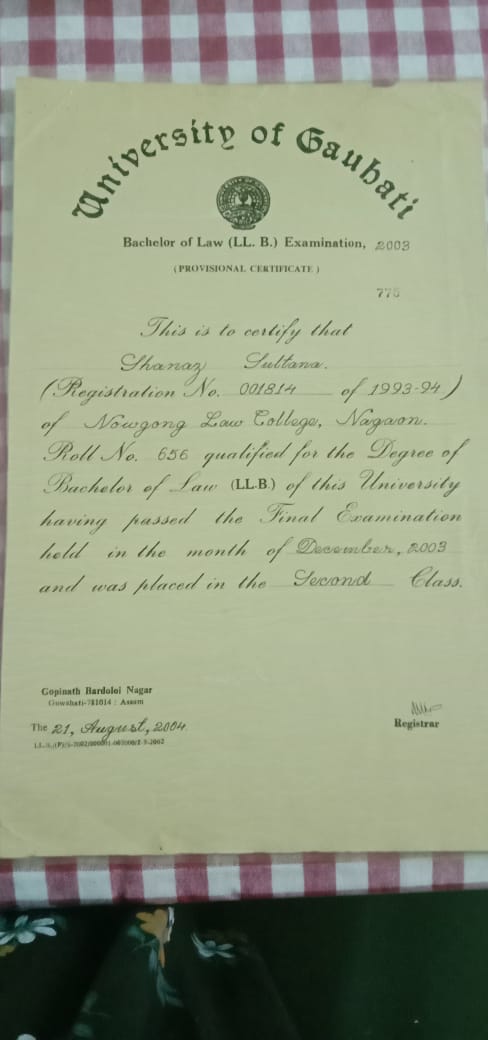 University of Gauhati
Bachelor of Law (LL. B.) Examination, 2003
(PROVISIONAL CERTIFICATE)
775
This is to certify that
Shanaz Sultana.
(Registration No. 001814 of 1993-94)
of Nowgong Law College, Nagaon.
Roll No. 656 qualified for the Degree of
Bachelor of Law (LL.B.) of this University
having passed the Final Examination
held in the month of December, 2003
and was placed in the Second Class.
Gopinath Bardoloi Nagar
Guwahati-781014 : Assam
The 21, August, 2004.
Registrar